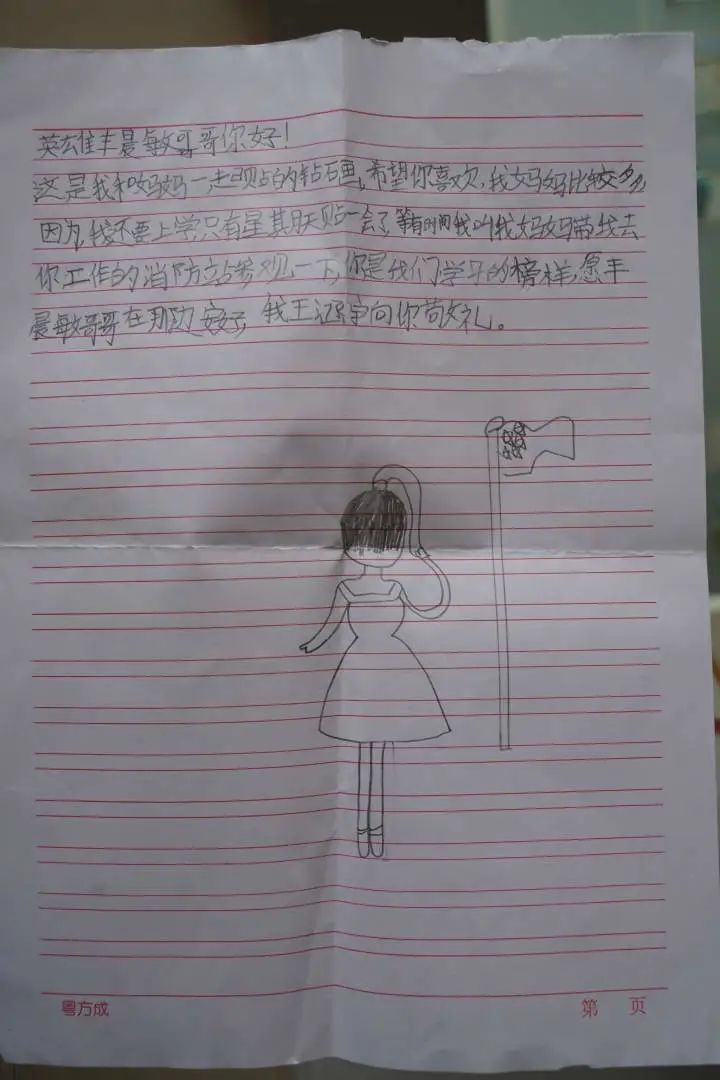 英雄丰晨敏哥哥你好!
这是我和妈妈一起贴的钻石画,希望你喜欢,我妈妈比较多,
因为,我还要上学只有星其天贴一会了,等有时间我叫我妈妈带我去
你工作的消防站参观一下,你是我们学习的榜样,愿丰
晨敏哥哥在那边安好, 我王 宇向你敬礼。
粤方成
第 页